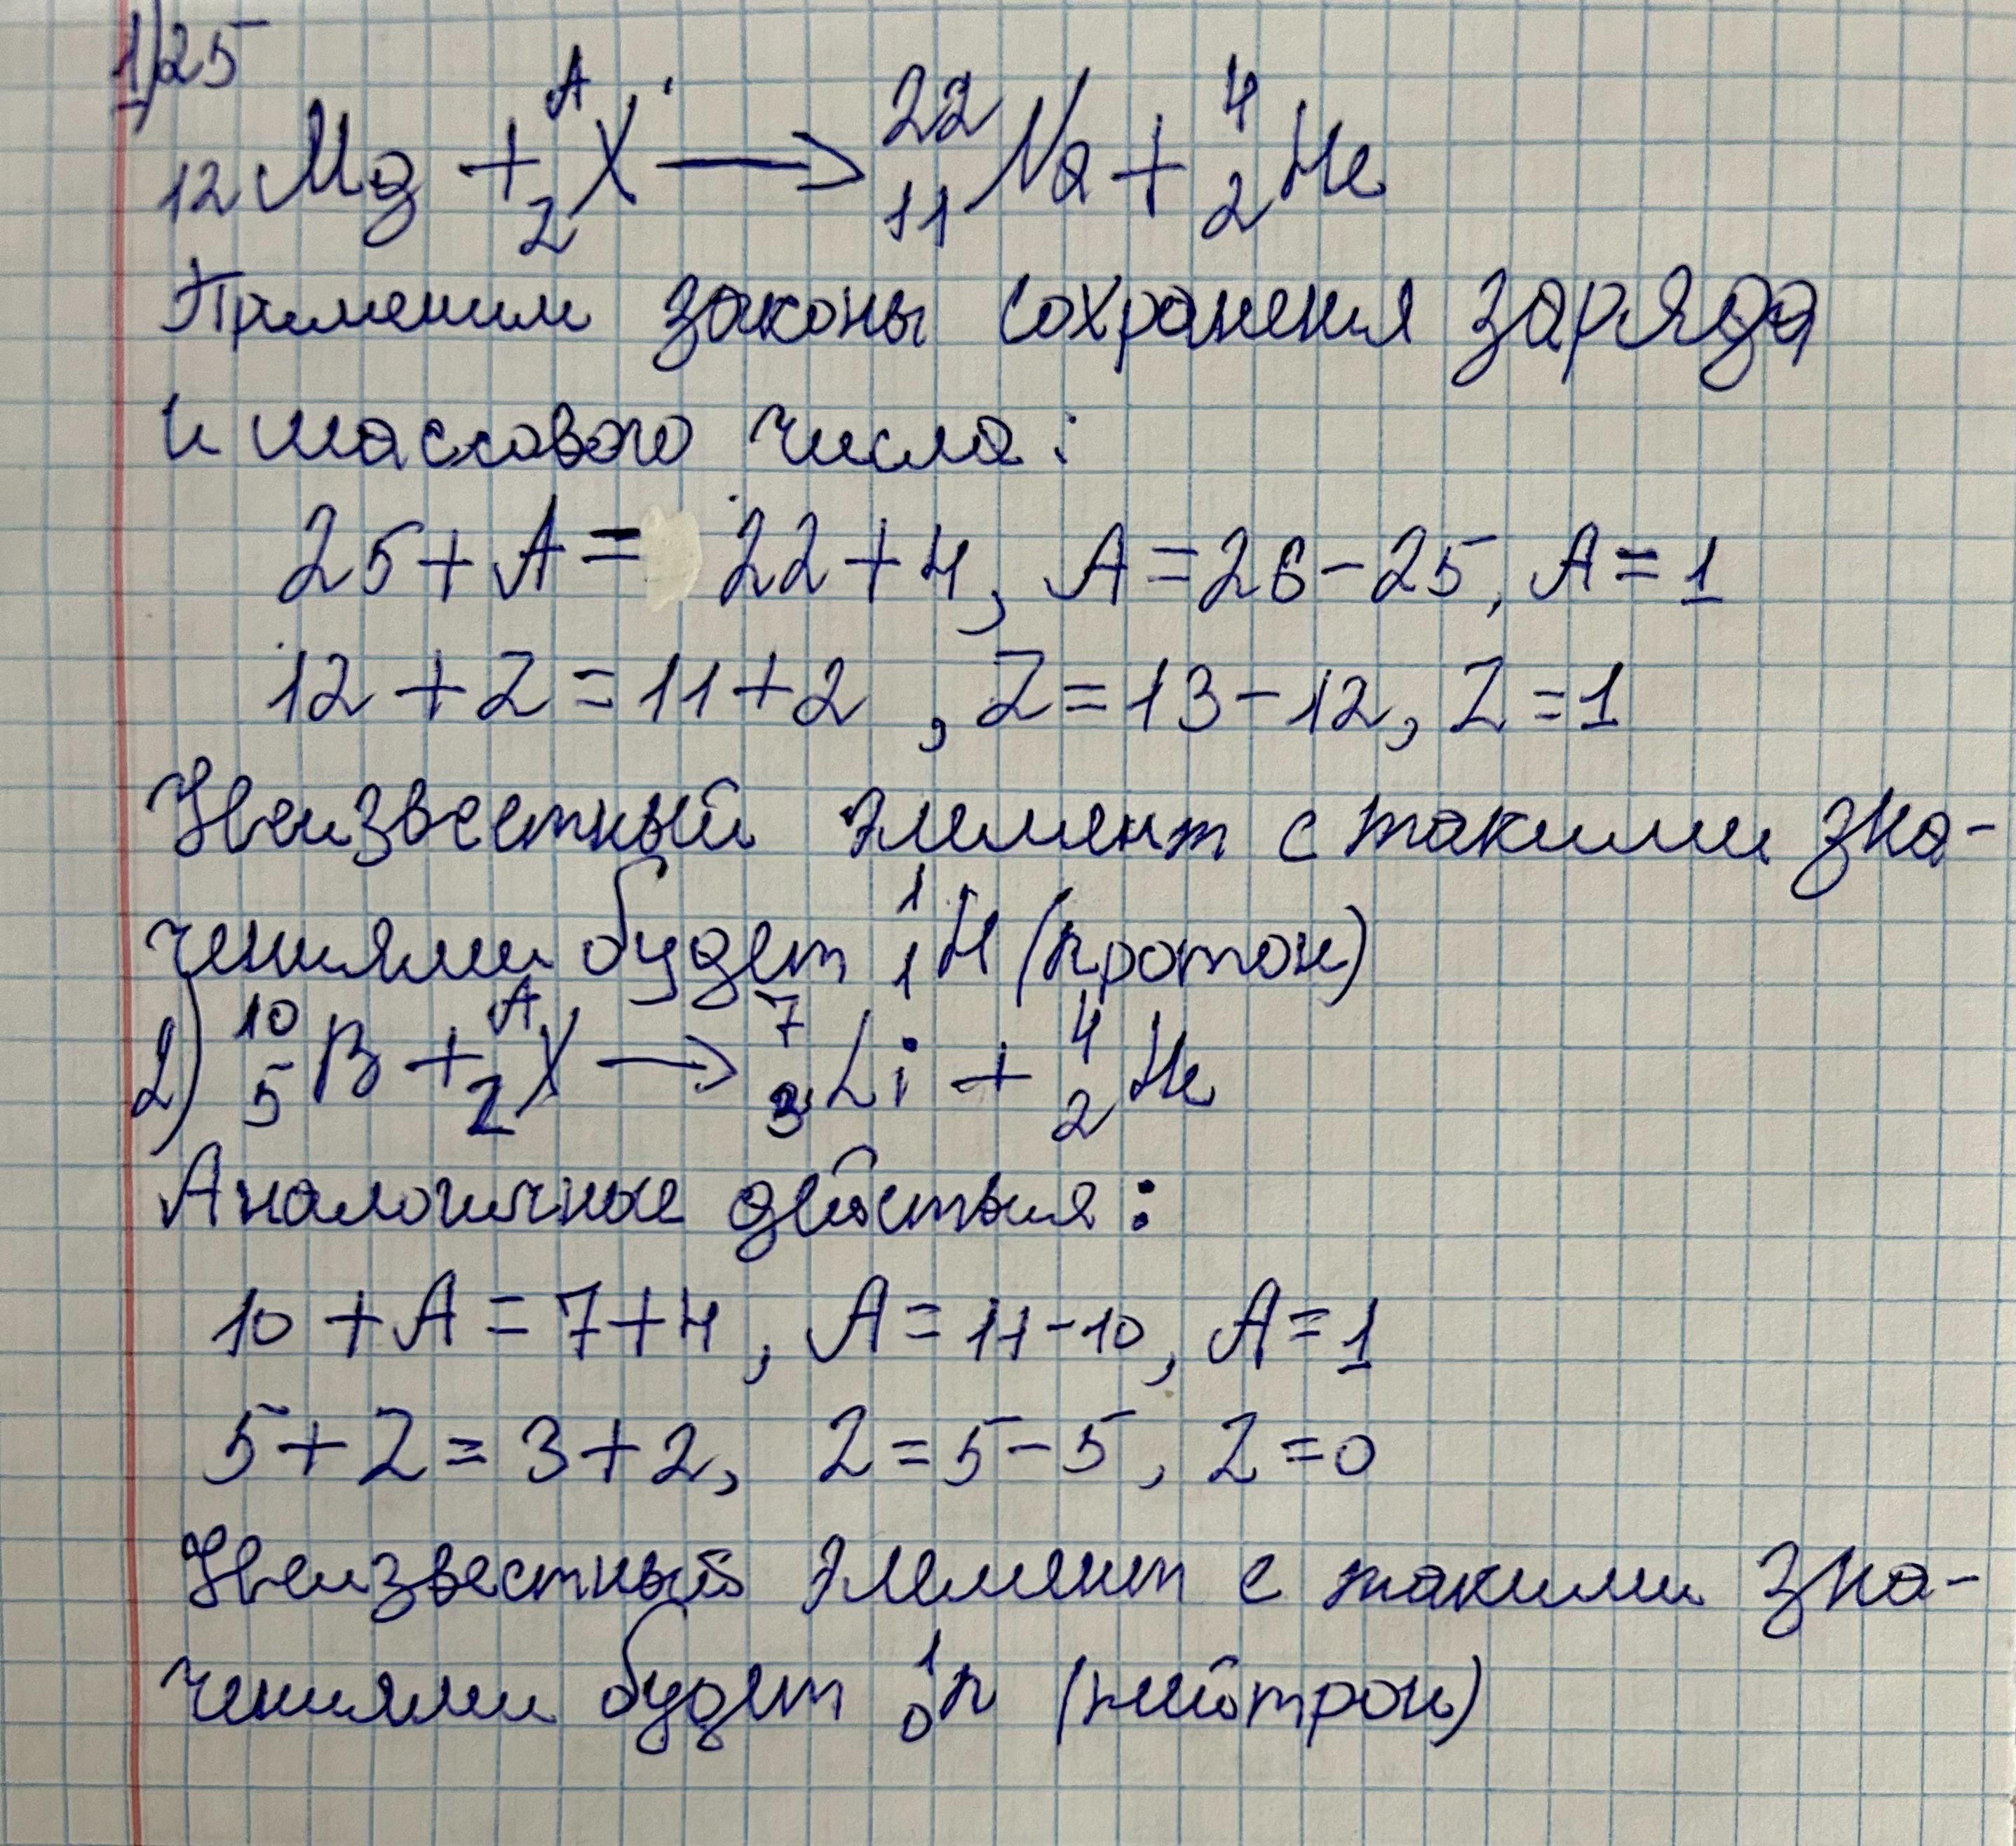 1) ²⁵₁₂Mg + ᴬ_ZX → ²²₁₁Na + ⁴₂He
Применим законы сохранения заряда
и массового числа:
25 + A = 22 + 4, A = 26 - 25, A = 1
12 + Z = 11 + 2, Z = 13 - 12, Z = 1
Неизвестный элемент с такими зна-
чениями будет ¹₁H (протон)
2) ¹⁰₅B + ᴬ_ZX → ⁷₃Li + ⁴₂He
Аналогичные действия:
10 + A = 7 + 4, A = 11 - 10, A = 1
5 + Z = 3 + 2, Z = 5 - 5, Z = 0
Неизвестный элемент с такими зна-
чениями будет ¹₀n (нейтрон)